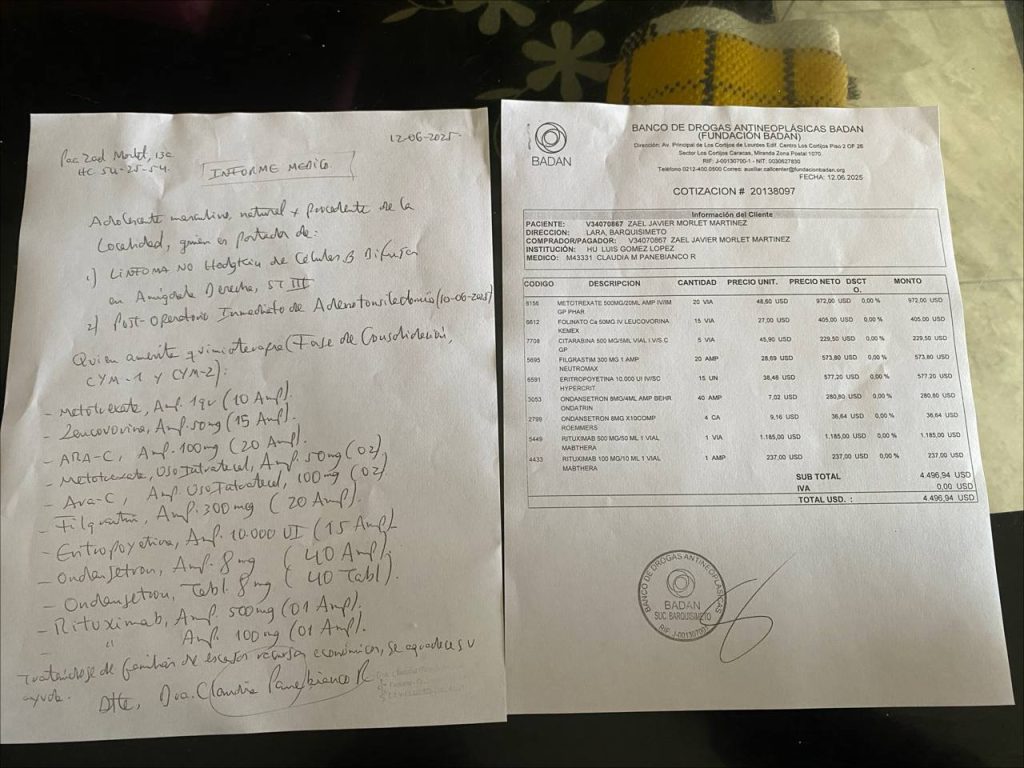 12-06-2025
Pac Zael Morlet, 13a
HC 54-25-54.
INFORME MEDICO
Adolescente masculino, natural y procedente de la
Localidad, quien es portador de:
1) LINFOMA NO Hodgkin de Células B Difusa
en Amígdala Derecha, ST III
2) Post-Operatorio Inmediato de Adenotonsilectomía (10-06-2025)
Quien amerita quimioterapia (Fase de Consolidación,
CYM-1 y CYM-2):
- Metotrexate, Amp. 1gr (10 Amp).
- Leucovorina, Amp. 50mg (15 Amp).
- ARA-C, Amp. 100mg (20 Amp).
- Metotrexate, Uso Intratecal, Amp. 50mg (02)
- Ara-C, Amp Uso Intratecal, 100mg (02)
- Filgrastin, Amp. 300mcg (20 Amp).
- Eritropoyetina, Amp. 10.000 UI (15 Amp)
- Ondansetron, Amp. 8mg (40 Amp).
- Ondansetron, Tabl. 8mg (40 Tabl).
- Rituximab, Amp. 500mg (01 Amp).
- " Amp. 100mg (01 Amp).
Tratándose de familia de escasos recursos económicos, se agradece su
ayuda.
Atte, Dra. Claudia Panebianco R
BADAN
BANCO DE DROGAS ANTINEOPLÁSICAS BADAN
(FUNDACIÓN BADAN)
Dirección: Av. Principal de Los Cortijos de Lourdes Edif. Centro Los Cortijos Piso 2 OF 26
Sector Los Cortijos Caracas, Miranda Zona Postal 1070
RIF: J-00130700-1 - NIT. 0030627830
Teléfono 0212-400.0500 Correo: auxiliar.callcenter@fundacionbadan.org
FECHA: 12.06.2025
COTIZACION # 20138097
Información del Cliente
PACIENTE: V34070867 ZAEL JAVIER MORLET MARTINEZ
DIRECCION: LARA, BARQUISIMETO
COMPRADOR/PAGADOR: V34070867 ZAEL JAVIER MORLET MARTINEZ
INSTITUCIÓN: HU LUIS GOMEZ LOPEZ
MEDICO: M43331 CLAUDIA M PANEBIANCO R
CODIGO DESCRIPCION CANTIDAD PRECIO UNIT. PRECIO NETO DSCTO. MONTO
8156 METOTREXATE 500MG/20ML AMP IV/IM GP PHAR 20 VIA 48,60 USD 972,00 USD 0,00 % 972,00 USD
6612 FOLINATO Ca 50MG IV LEUCOVORINA KEMEX 15 VIA 27,00 USD 405,00 USD 0,00 % 405,00 USD
7708 CITARABINA 500 MG/5ML VIAL I.V/S.C GP 5 VIA 45,90 USD 229,50 USD 0,00 % 229,50 USD
5695 FILGRASTIM 300 MG 1 AMP NEUTROMAX 20 AMP 28,69 USD 573,80 USD 0,00 % 573,80 USD
6591 ERITROPOYETINA 10.000 UI IV/SC HYPERCRIT 15 UN 38,48 USD 577,20 USD 0,00 % 577,20 USD
3053 ONDANSETRON 8MG/4ML AMP BEHR ONDATRIN 40 AMP 7,02 USD 280,80 USD 0,00 % 280,80 USD
2799 ONDANSETRON 8MG X10COMP ROEMMERS 4 CA 9,16 USD 36,64 USD 0,00 % 36,64 USD
5449 RITUXIMAB 500 MG/50 ML 1 VIAL MABTHERA 1 VIA 1.185,00 USD 1.185,00 USD 0,00 % 1.185,00 USD
4433 RITUXIMAB 100 MG/10 ML 1 VIAL MABTHERA 1 AMP 237,00 USD 237,00 USD 0,00 % 237,00 USD
SUB TOTAL 4.496,94 USD
IVA 0,00 USD
TOTAL USD. : 4.496,94 USD
BANCO DE DROGAS ANTINEOPLÁSICAS
BADAN
SUC. BARQUISIMETO
RIF. J-00130700